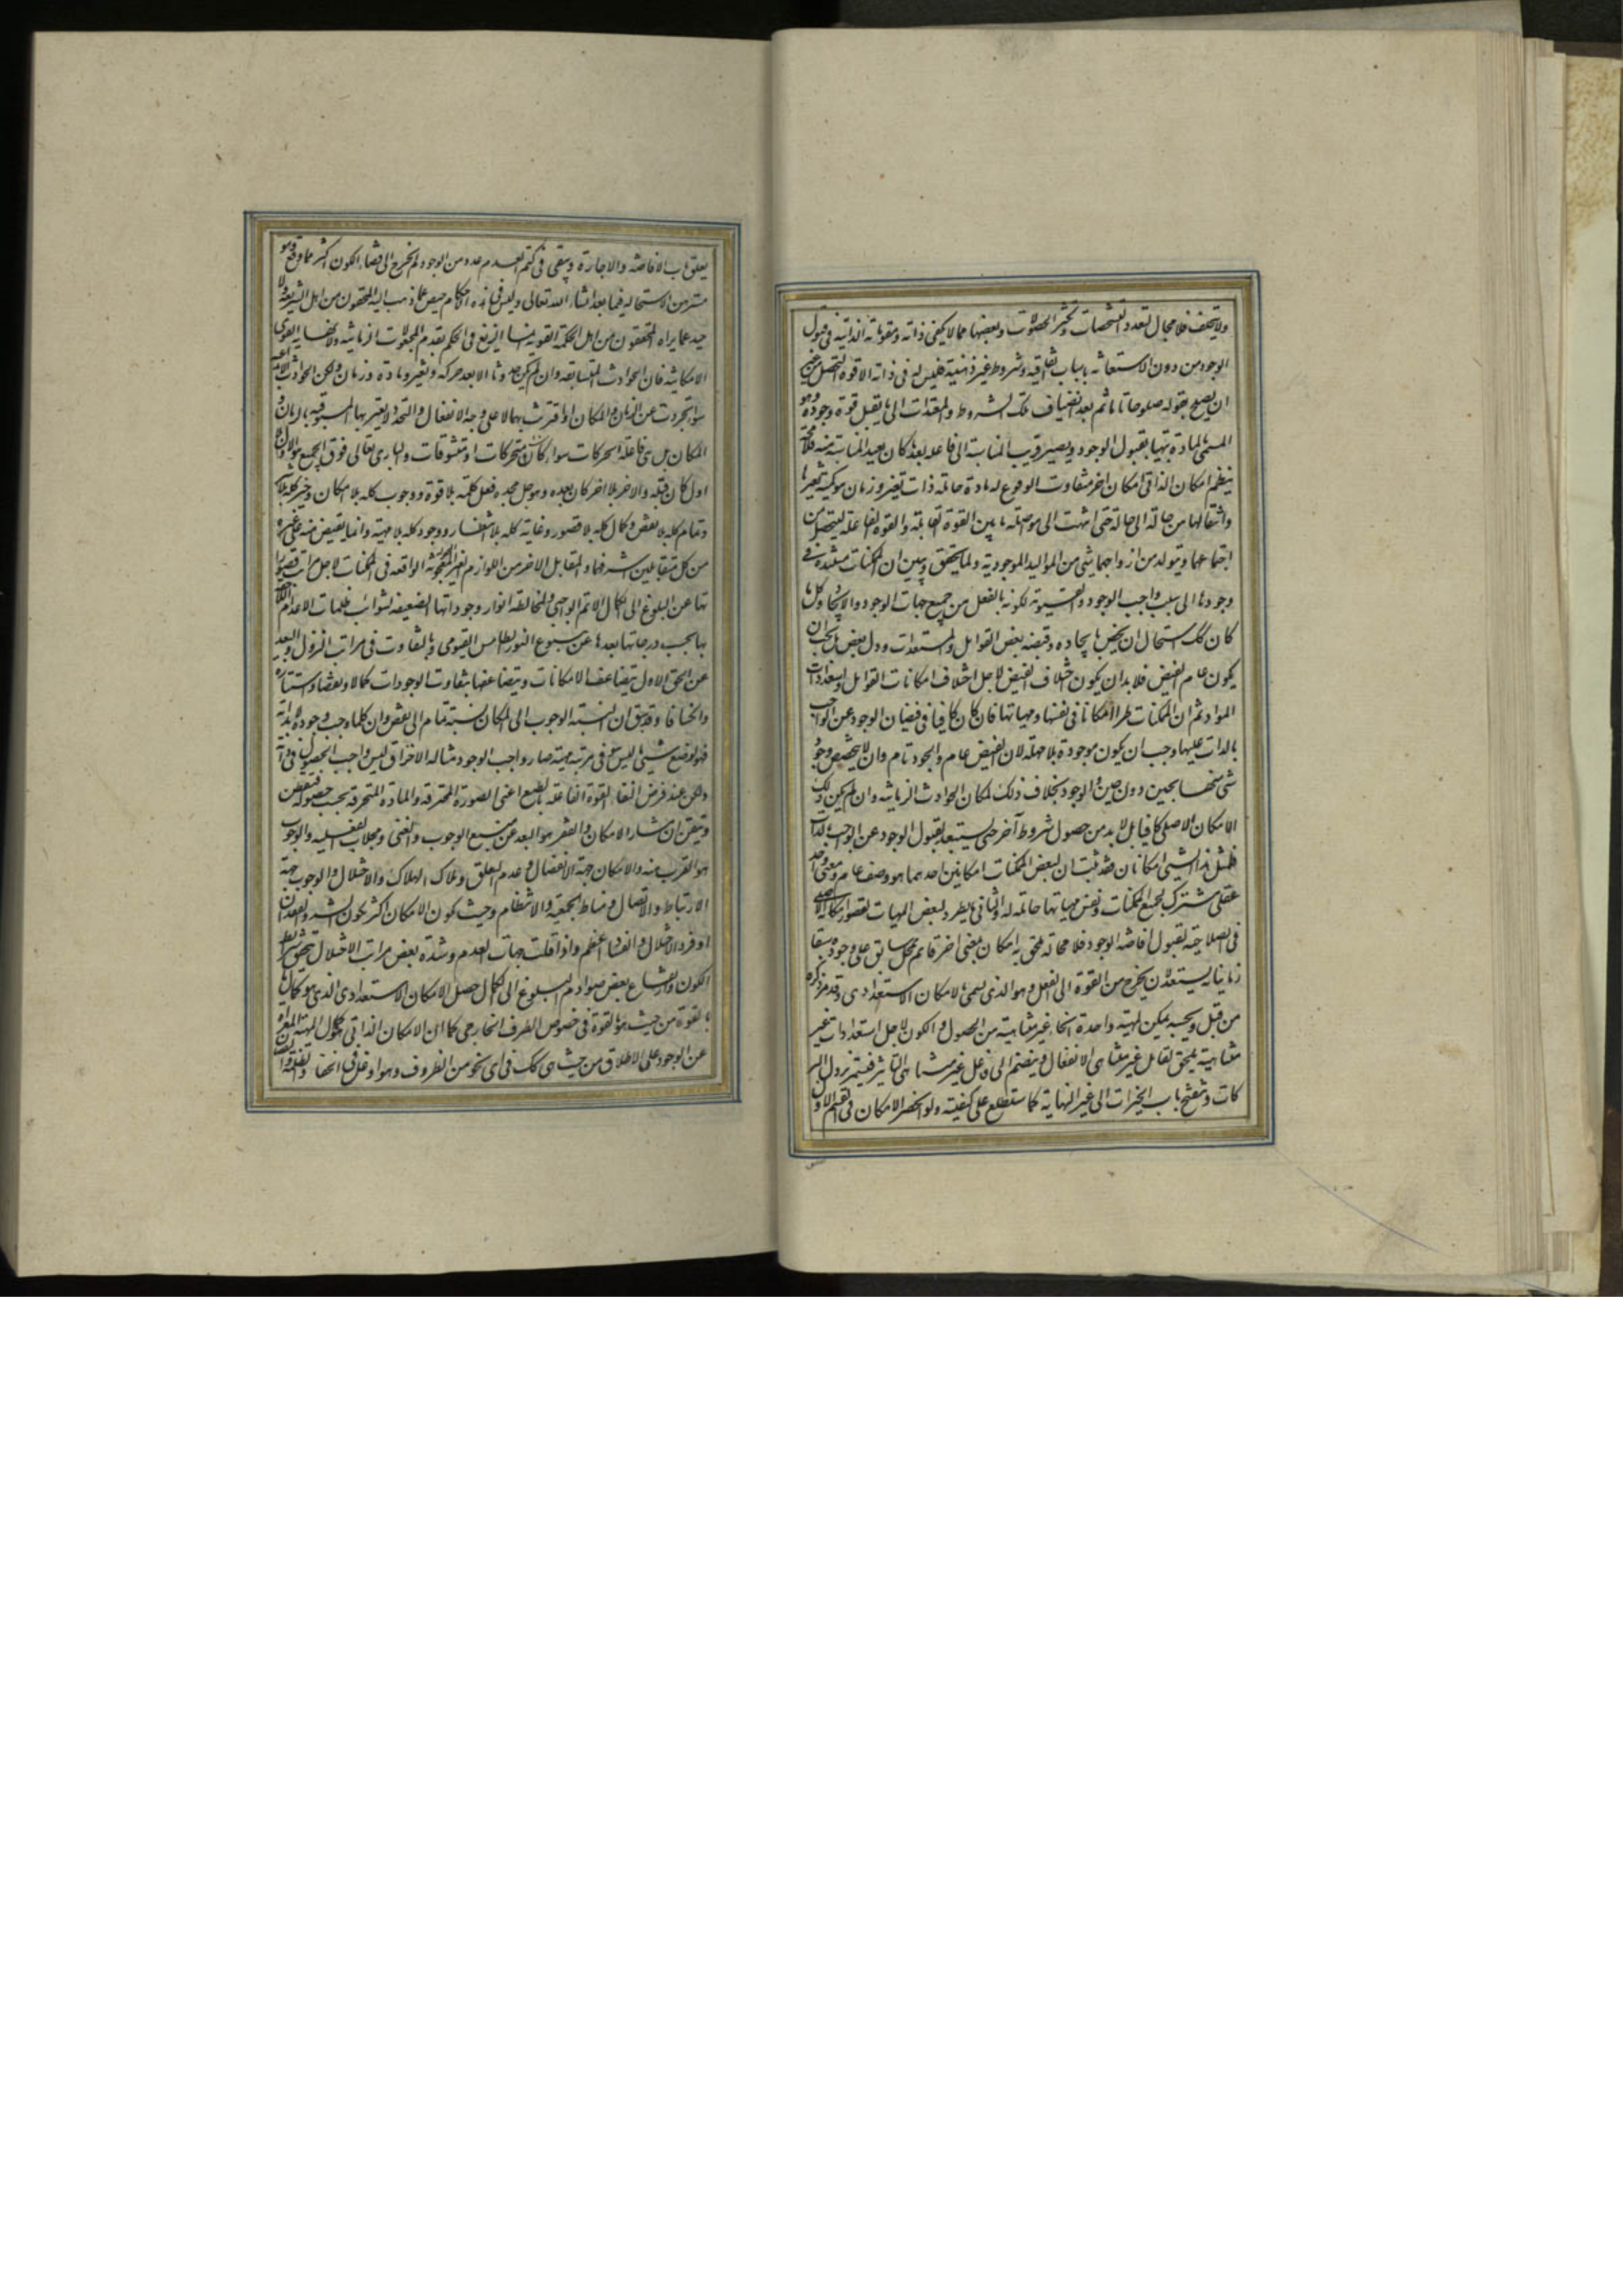 ولا يتخلف فلا مجال لتعدد التشخصات وتكثر الحصولات وبعضها مما لا يكفى ذاته ومقوماته الذاتية فى قبول
الوجود من دون الاستعانة باسباب اتفاقية وشروط غير ذاتية فليس له فى ذاته الا قوة التحصل من غير
ان يصلح لقبوله صلوحا تاما ثم بعد انضياف تلك الشروط والمعدات الى ما يقبل قوة وجوده وهو
المسمى بالمادة يتهيأ لقبول الوجود ويصير قريب المناسبة الى فاعله بعد ما كان بعيد المناسبة منه فلا محالة
ينظم امكان الذاتى امكان اخر متفاوت الوقوع له مادة حاملة ذات تغير وزمان هو كمية تغيرها
وانتقالها من حالة الى حالة حتى انتهت الى مواصلة ما بين القوة القابلة والقوة الفاعلة ليتحصل من
اجتماعهما ويتولد من ازدواجهما شىء من المواليد الموجودية ولما تحقق وتبين ان الممكنات مستندة فى
وجودها الى سبب واجب الوجود والقيومية لكونه بالفعل من جميع جهات الوجود والايجاد وكل ما
كان كك استحال ان يختص بايجاده وفيضه بعض القوابل والمستعدات دون بعض بل يجب ان
يكون عام الفيض فلا بد ان يكون اختلاف الفيض لاجل اختلاف امكانات القوابل واستعدادات
المواد ثم ان للممكنات طرا امكانا فى نفسها ومهياتها فان كان كافيا فى فيضان الوجود عن الواجب
بالذات عليها وجب ان يكون موجودة بلا مهلة لان الفيض عام والجود تام وان لا يتخصص وجود
شى منها بحين دون حين والوجود بخلاف ذلك لمكان الحوادث الزمانية وان لم يكن ذلك
الامكان الاصلى كافيا بل لا بد من حصول شروط آخر حتى يستبعد لقبول الوجود عن الواجب بالذات
فلمثل هذا الشيئ امكانان فقد ثبت ان لبعض الممكنات امكانين احدهما هو وصف عام ومعنى واحد
عقلى مشترك لجميع الممكنات ونفس مهياتها حاملة له والثانى ما يطرء لبعض المهيات لقصور امكانه الاصلى
فى الصلاحية لقبول افاضة الوجود فلا محالة يلحق به امكان بمعنى اخر قائم بمحل سابق على وجوده سبقا
زمانيا به يستعد لان يخرج من القوة الى الفعل وهو الذى يسمى بالامكان الاستعدادى وقد مر ذكره
من قبل وبحسبه يمكن لمهية واحدة انحاء غير متناهية من الحصول والكون لاجل استعدادات غير
متناهية يلحق لقابل غير متناهى الانفعال وينضم الى فاعل غير متناهى التاثير فيستمر نزول البر
كات وينفتح باب الخيرات الى غير النهاية كما ستطلع على كيفيته ولو انحصر الامكان فى القسم الاول
يغلق باب الافاضه والاجازة ويبقى فى كتم العدم عدد من الوجود لم يخرج الى فضاء الكون اكثر مما وقع وهو
مستبين الاستحاله فيما بعد انشاء الله تعالى وليس فى هذه الاحكام حيص عما ذهب اليه المحققون من اهل الشريعة ولا
حيد عما يراه المحققون من اهل الحكمة القويمة انما الزيغ فى الحكم بقدم المجعولات الزمانيه ولا تناهى القوى
الامكانية فان الحوادث المتسابقه وان لم يكن حدوثها الا بعد حركه وتغير ومادة وزمان ولكن الحوادث الابداعية
سواء تجردت عن الزمان والمكان او اقترنت بهما لا على وجه الانفعال والتجدد لا يعتبر بها المسبوقيه بالزمان و
المكان بل هى فاعلة الحركات سواء كانت متحركات او متشوقات والبارى تعالى فوق الجميع هو الاول بلا
اول كان قبله والاخر بلا اخر كان بعده وهو جل مجده فعل كله بلا قوة ووجوب كله بلا امكان وخير كله بلا شر
وتمام كله بلا نقص وكمال كله بلا قصور وغاية كله بلا انتظار ووجود كله بلا مهية وانما يفيض منه على غيره
من كل متقابلين اشرفهما والمقابل الاخر من اللوازم الغير المجعولة الواقعه فى الممكنات لاجل مراتب قصورا
تها عن البلوغ الى الكمال الاتم الواجبى ولمخالطة انوار وجوداتها الضعيفه لشوائب ظلمات الاعدام اللاحقة
بها بحسب درجات بعدها عن ينبوع النور الطامس القيومى وبالتفاوت فى مراتب النزول والبعد
عن الحق الاول يتضاعف الامكانات وبتضاعفها يتفاوت الوجودات كمالا ونقصا واستنارة
وانخسافا وقد سبق ان نسبة الوجوب الى الامكان نسبة تمام الى نقص وان كلما وجب وجوده لا بذاته
فهو لوضع شيئ ليس هو فى مرتبة مهيته صار واجب الوجود مثاله الاحتراق ليس واجب الحصول فى ذاته
ولكن عند فرض التقاء القوة الفاعلة بالطبع اعنى الصورة المحرقة والمادة المتحرقة يجب حصوله فتفطن
وتيقن ان منشأ الامكان والفقر هو البعد عن منبع الوجوب والغنى ومجلاب الفعليه والوجوب
هو القرب منه والامكان جهة الانفصال وعدم التعلق وملاك الهلاك والاختلال والوجوب جهة
الارتباط والاتصال ومناط الجمعية والانتظام وحيث يكون الامكان اكثر يكون الشر والفقدان
اوفر والاختلال والفساد اعظم واذا قلت جهات العدم وشدة بعض مراتب الاختلال بتحقق شرائط
الكون وارتفاع بعض موادم البلوغ الى الكمال حصل الامكان الاستعدادى الذى هو كمال ما
بالقوة من حيث هو بالقوة فى خصوص الظرف الخارجى كما ان الامكان الذاتى كمال المهية المعراة
عن الوجود على الاطلاق من حيث هى كك فى اى نحو من الظروف وهو اوغل فى الخفا